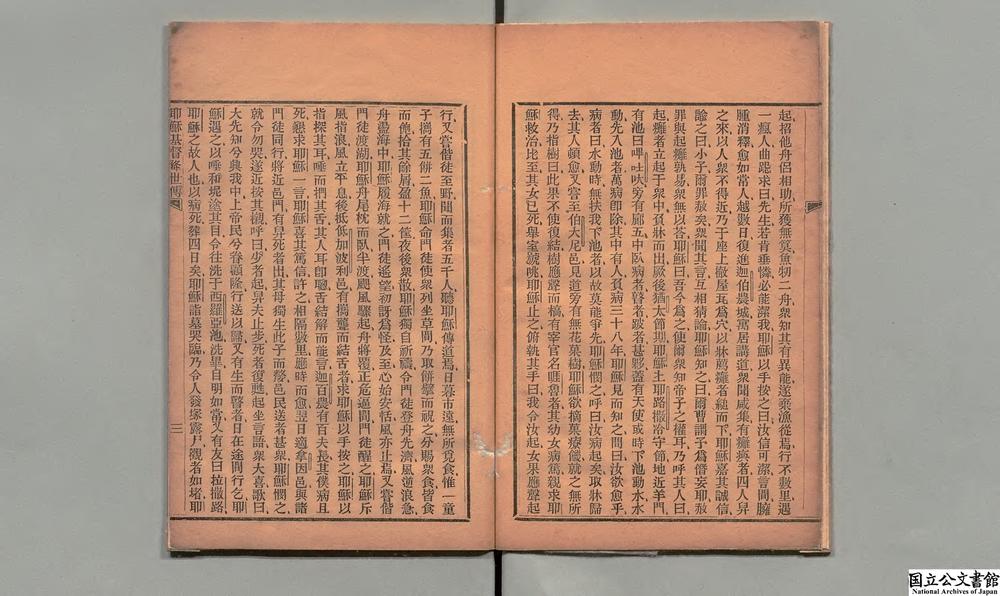 起招他舟侶相助所獲無算魚牣二舟衆知其有異能遂棄漁從焉行不數里遇
一瘋人曲跽求曰先生若肯垂憐必能潔我耶穌以手按之曰汝信可潔言間臃
腫消釋愈如常人越數日復進迦伯農城寓居講道衆聞咸集有癱瘓者四人舁
之來以人衆不得近乃于座上撤屋瓦爲穴以牀薦癱者縋而下耶穌嘉其誠信
諭之曰小子爾罪赦矣衆聞其言互相猜論耶穌知之曰爾曹謂予爲僭妄耶赦
罪與起癱孰易衆無以荅耶穌曰吾今爲之使爾衆知帝子之權耳乃呼其人曰
起癱者立起于衆中負牀而出厥後猶太節期耶穌上耶路撒冷守節地近羊門
有池曰呼吐吠旁有廊五中臥病者瞽者跛者甚夥蓋有天使或時下池動水水
動先入池者萬病卽除其中有人負病三十八年耶穌見而知之問曰汝欲愈乎
病者曰水動時無扶我下池者以故莫能爭先耶穌憫之呼曰汝病起矣取牀歸
去其人頓愈又嘗至伯大尼邑見道旁有無花菓樹耶穌欲摘菓療饑就之無所
得乃指樹曰此果不使復結樹應聲而槁有宰官名睚魯者其幼女病篤親求耶
穌救治比至其女已死舉室號咷耶穌止之俯執其手曰我令汝起女果應聲起
行又嘗偕徒至野間而集者五千人聽耶穌傳道焉日暮市遠無所覓食惟一童
子擕有五餅二魚耶穌命門徒使衆列坐草間乃取餅擘而視之分賜衆食皆食
而飽拾其餘屑盈十二筐夜後衆散耶穌獨自祈禱令門徒登舟先濟風逆浪急
舟盪海中耶穌履海就之門徒遙望初訝爲怪及至心始安恬風亦止焉又嘗偕
門徒渡湖耶穌舟尾枕而臥半渡颶風驟起舟將覆正危逼間門徒醒之耶穌斥
風指浪風立平息後抵低加波利邑有擕聾而結舌者求耶穌以手按之耶穌以
指探其耳唾而捫其舌其人耳卽聰舌結解而能言迦百農有百夫長其僕病且
死懇求耶穌一言耶穌喜其篤信許之相隔數里應時而愈翌日適拿因邑與諸
門徒同行將近邑門有舁死者出其母獨生此子而嫠邑民送者甚衆耶穌憫之
就令勿哭遂近按其櫬呼曰少者起舁夫止步死者復甦起坐言語衆大喜歌曰
大先知兮興我中上帝民兮眷顧隆行送以歸又有生而瞽者日在途間行乞耶
穌遇之以唾和坭塗其目令往洗于西羅亞池洗畢目明如當又有友曰拉撒路
耶穌之故人也以病死葬四日矣耶穌詣墓哭臨乃令人發塚露尸觀者如堵耶
耶穌基督降世傳
三
国立公文書館
National Archives of Japan